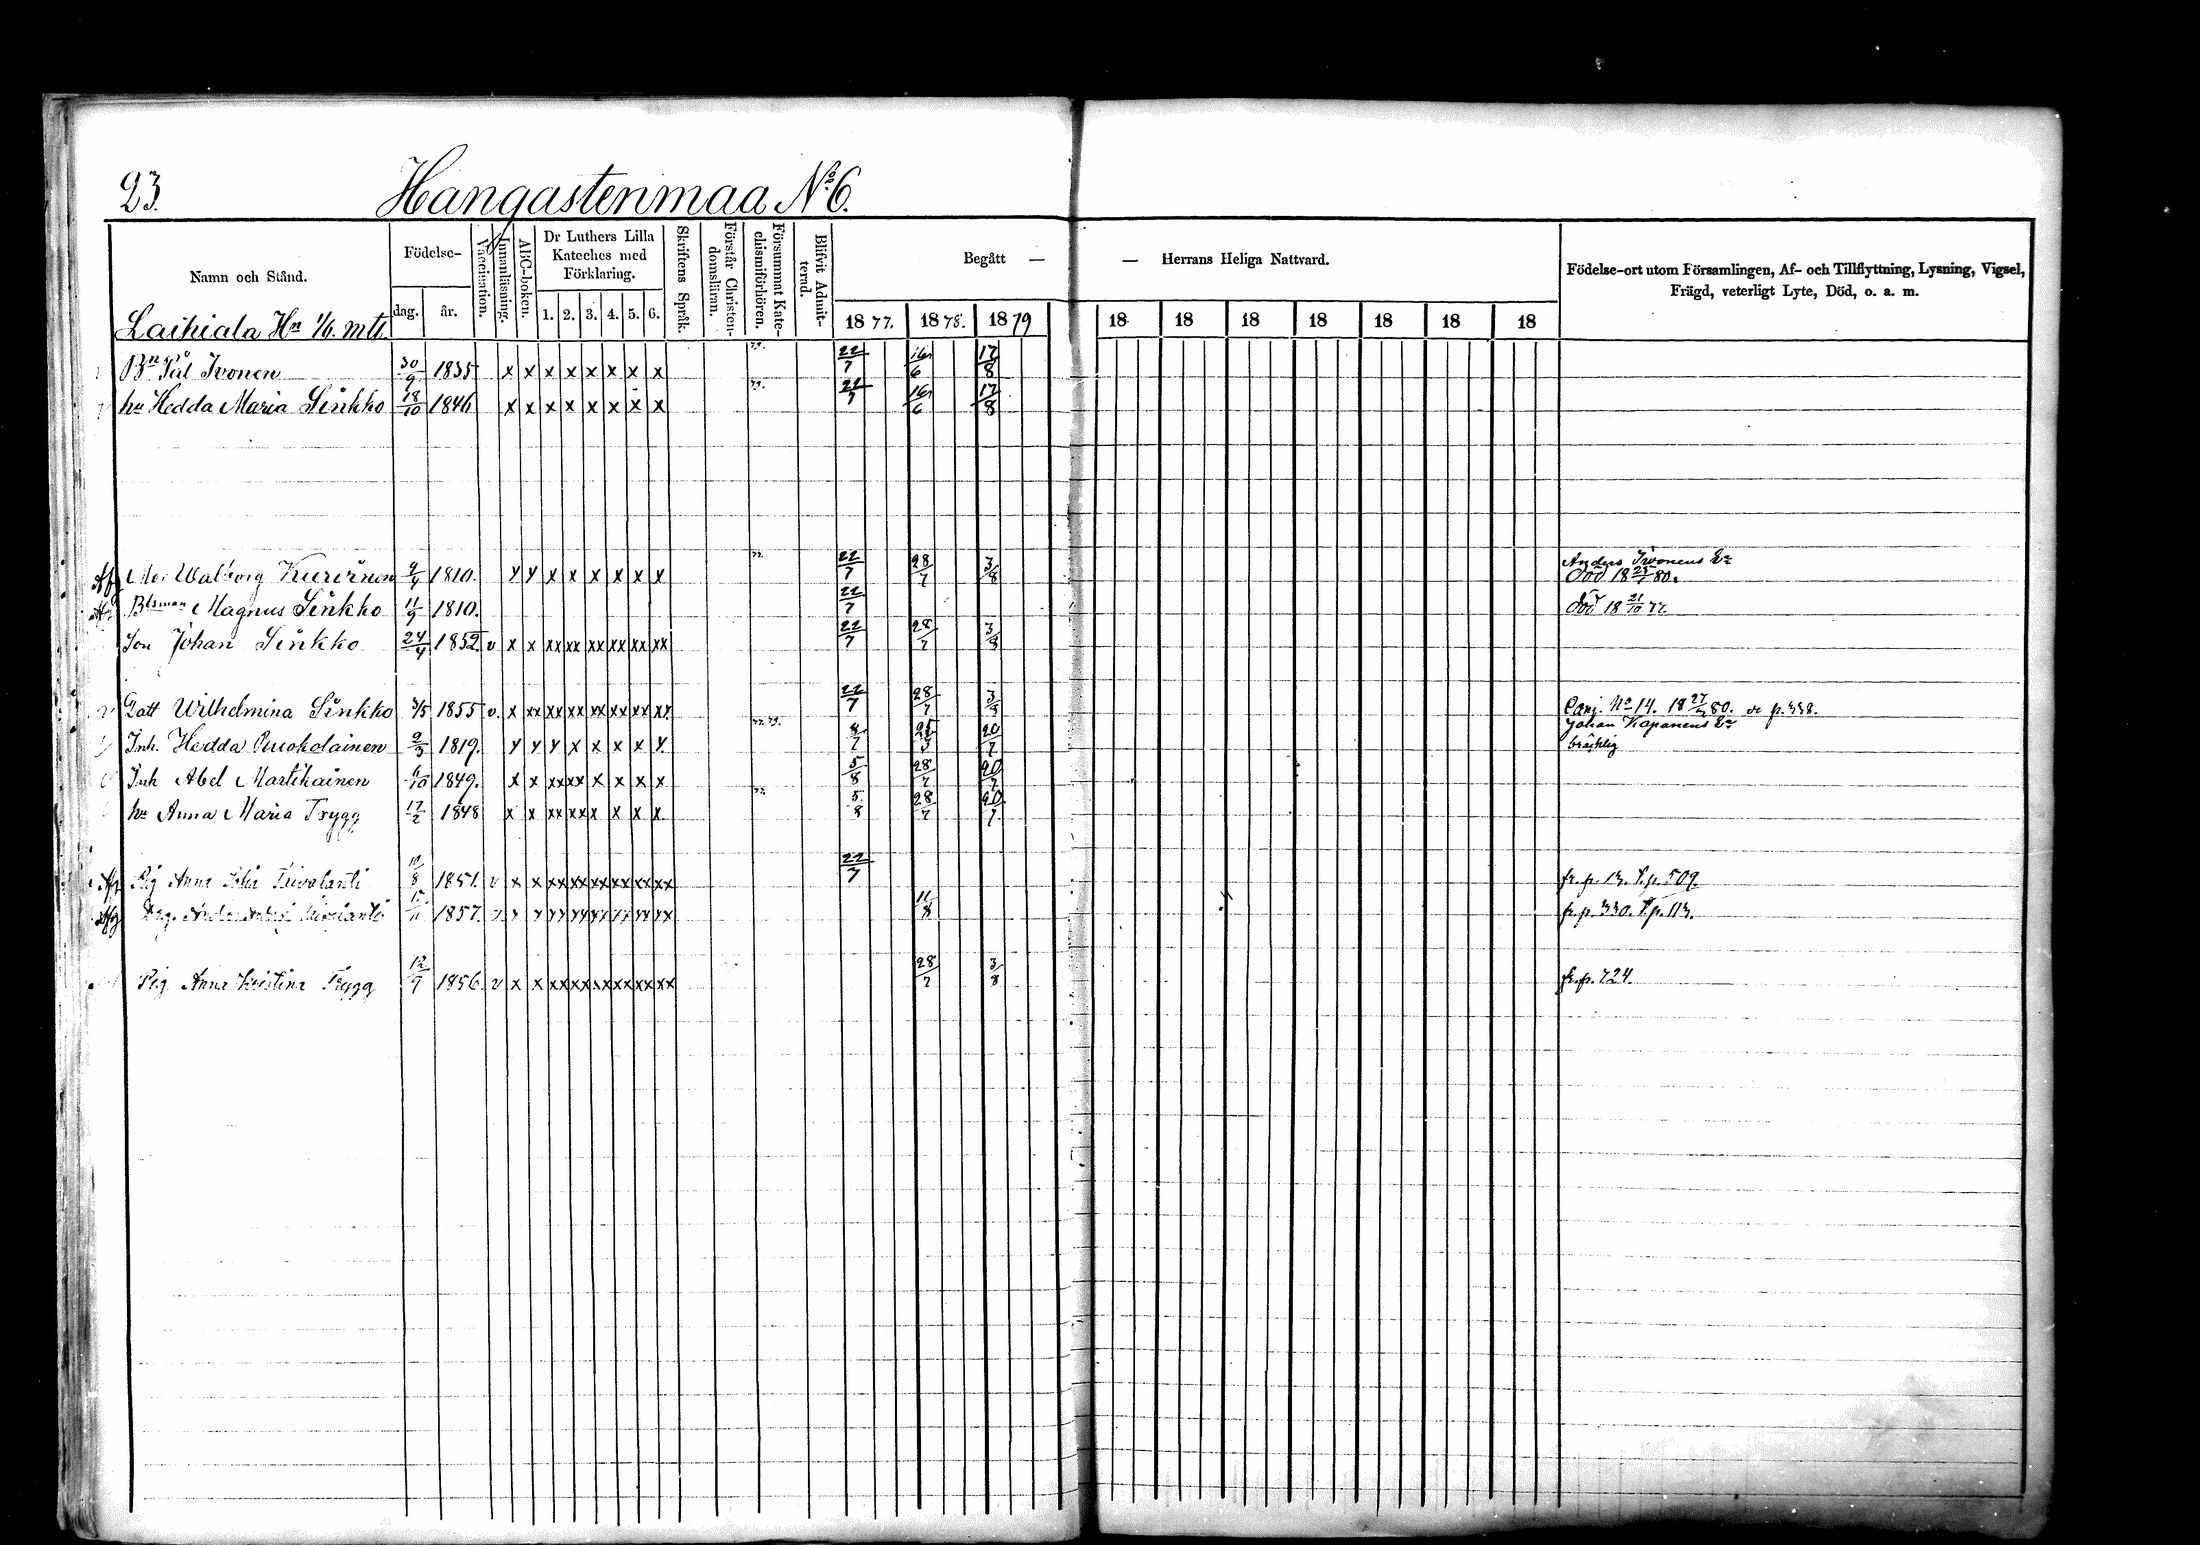 23. Hangastenmaa No 6.
Namn och Stånd. Födelse- dag. år. Vaccination. Innanläsning. ABC-boken. Dr Luthers Lilla Kateches med Förklaring. 1. 2. 3. 4. 5. 6. Skriftens Språk. Förstår Christendomsläran. Försummat Katechismiförhören. Blifvit Admitterad. Begått — — Herrans Heliga Nattvard. Födelse-ort utom Församlingen, Af- och Tillflyttning, Lysning, Vigsel, Frägd, veterligt Lyte, Död, o. a. m.
Laihiala Hn 1/6. mtl. 1877. 1878. 1879 18 18 18 18 18 18 18
Bn Pål Ivonen 30/9 1835 x x x x x x x x 79. 22/7 16/6 17/8
hu Hedda Maria Sinkko 18/10 1846 x x x x x x x x 79. 22/7 16/6 17/8
Afg Walborg Kurvinen 9/4 1810. x x x x x x x x 77. 22/7 28/7 3/8 Anders Ivonens Ea
Död 18 25/1 80.
Magnus Sinkko 11/9 1810. 22/7 Död 18 21/10 77.
Son Johan Sinkko 24/4 1852 v x x xx xx xx xx xx xx 22/7 28/7 3/8
Dott Wilhelmina Sinkko 3/5 1855 v. x xx xx xx xx xx xx xx 22/7 28/7 3/8 No 14. 80. p. 338.
Inh. Hedda Puuokolainen 9/3 1819. x x x x x x x x 77 79. 8/7 20/7 Johan Kapanens Ea
bräcklig
Inh Abel Martikainen 1849. x x xx xx x x x x 5/8 28/7 20/7
hu Anna Maria Trygg 17/2 1848 x x xx xx x x x x 77 5/8 28/7 20/7
Afg Pig Anna 10/8 1851. v x x xx xx xx xx xx xx 22/7 fr. p. 13. T. p. 509.
Afg 1857. v x x xx xx xx xx xx xx 11/8 fr. p. 330. T. p. 113.
Pig Anna Kristina Trygg 12/9 1856. v x x xx xx xx xx xx xx 28/7 3/8 fr. p. 724.